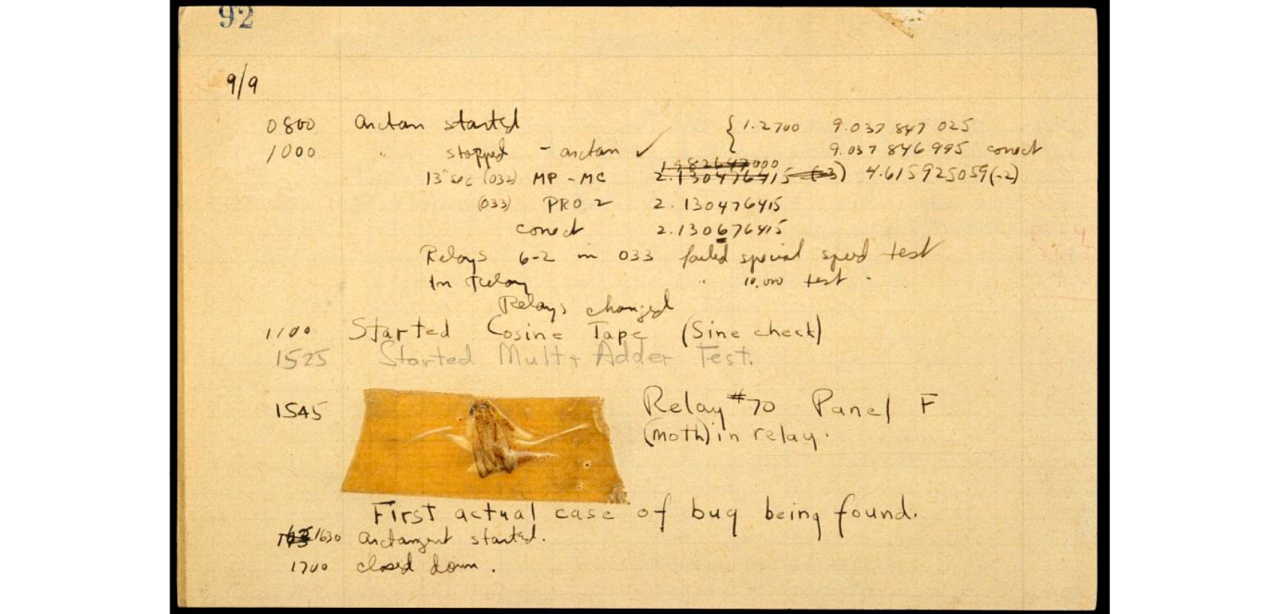 92
9/9
0800 arctan started { 1.2700 9.037 847 025
1000 " stopped - arctan ✓ 9.037 846 995 correct
13" sec (032) MP - MC 2.130476415 (-3) 4.615925059(-2)
(033) PRO 2 2.130476415
correct 2.130676415
Relays 6-2 in 033 failed special speed test
In Relay " 10,000 test.
Relays changed
1100 Started Cosine Tape (Sine check)
1525 Started Mult + Adder Test.
1545 Relay #70 Panel F
(moth) in relay.
First actual case of bug being found.
1630 arctangent started.
1700 closed down.